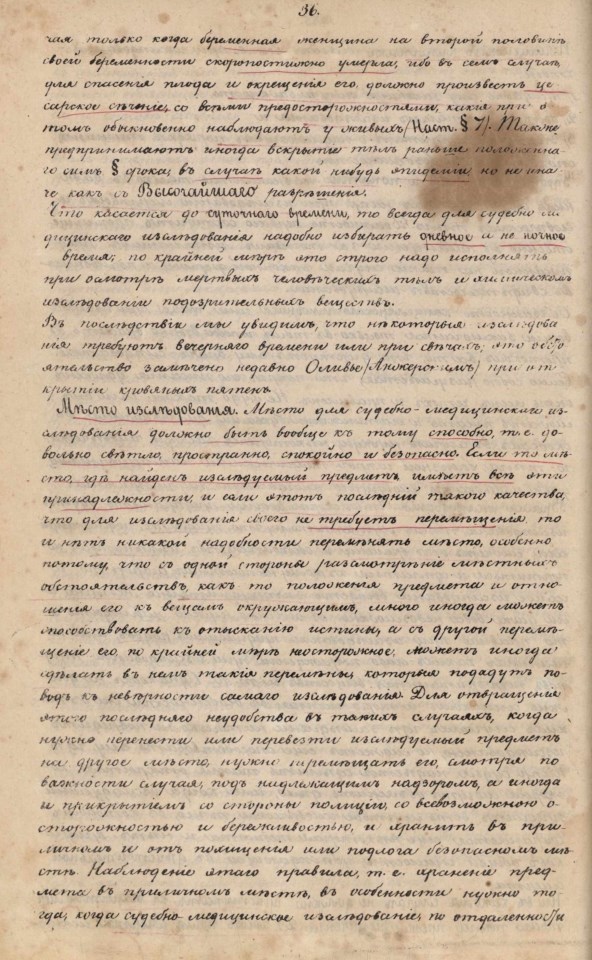 36.
чая только когда беременная женщина на второй половинѣ
своей беременности скоропостижно умерла, ибо въ семъ случаѣ,
для спасенія плода и окрещенія его, должно произвесть це-
сарское сѣченіе, со всѣми предосторожностями, какія при э
томъ обыкновенно наблюдаютъ у живыхъ /Наст. § 7/. Также
предпринимаютъ иногда вскрытіе тѣлъ раньше положенна-
го симъ § срока; въ случаѣ какой нибудь эпидеміи но не ина-
че какъ съ Высочайшаго разрѣшенія.
Что касается до суточнаго времени, то всегда для судебно ме
дицинскаго изслѣдованія надобно избирать дневное и не ночное
время; по крайней мѣрѣ это строго надо исполнять
при осмотрѣ мертвыхъ человѣческихъ тѣлъ и химическомъ
изслѣдованіи подозрительныхъ веществъ.
Въ послѣдствіи мы увидимъ, что нѣкоторыя изслѣдова
нія требуютъ вечерняго времени или при свѣчахъ; это обсто
ятельство замѣчено недавно Оливье /Анжерскимъ/ при от
крытіи кровяныхъ пятенъ.
Мѣсто изслѣдованія. Мѣсто для судебно-медицинскаго из-
слѣдованія должно быть вообще къ тому способно, т. е. до-
вольно свѣтло, пространно, спокойно и безопасно. Если то мѣ-
сто, гдѣ найденъ изслѣдуемый предметъ, имѣетъ всѣ эти
принадлежности, и если этотъ послѣдній такого качества,
что для изслѣдованія своего не требуетъ перемѣщенія, то
и нѣтъ никакой надобности перемѣнять мѣсто, особенно
потому, что съ одной стороны разсмотрѣніе мѣстныхъ
обстоятельствъ, какъ то положенія предмета и отно-
шенія его къ вещамъ окружающимъ, много иногда можетъ
способствовать къ отысканію истины, а съ другой перемѣ-
щеніе его, по крайней мѣрѣ неосторожное, можетъ иногда
сдѣлать въ немъ такія перемѣны, которыя подадутъ по-
водъ къ невѣрности самаго изслѣдованія. Для отвращенія
этого послѣдняго неудобства въ такихъ случаяхъ, когда
нужно перенести или перевезти изслѣдуемый предметъ
на другое мѣсто, нужно перемѣщать его, смотря по
важности случая, подъ надлежащимъ надзоромъ, а иногда
и прикрытіемъ со стороны полиціи, со всевозможною о-
сторожностью и бережливостью, и хранить въ при-
личномъ и отъ похищенія или подлога безопасномъ мѣ-
стѣ. Наблюденіе этаго правила, т. е. храненіе пред-
мета въ приличномъ мѣстѣ, въ особенности нужно то-
гда, когда судебно-медицинское изслѣдованіе, по отдаленности